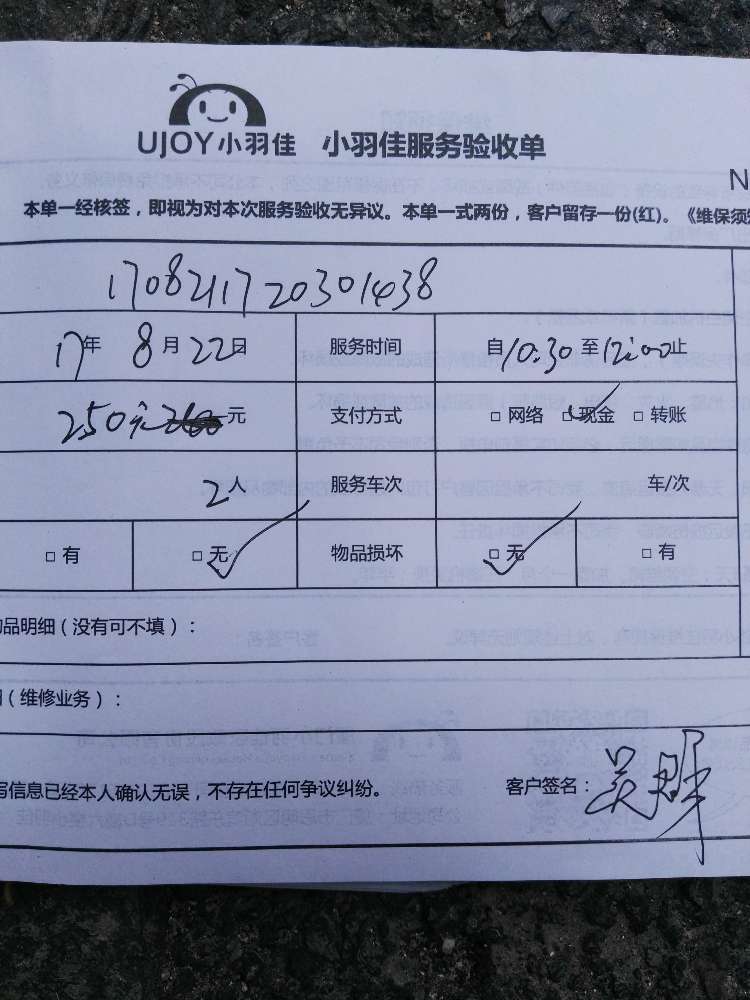 UJOY小羽佳 小羽佳服务验收单
N
本单一经核签，即视为对本次服务验收无异议。本单一式两份，客户留存一份(红)。《维保须知
1708211720301438
17年 8月 22日 服务时间 自10:30至12:00止
250元 元 支付方式 □ 网络 □ 现金 □ 转账
2人 服务车次 车/次
□ 有 □ 无 物品损坏 □ 无 □ 有
品明细（没有可不填）：
（维修业务）：
写信息已经本人确认无误，不存在任何争议纠纷。 客户签名：